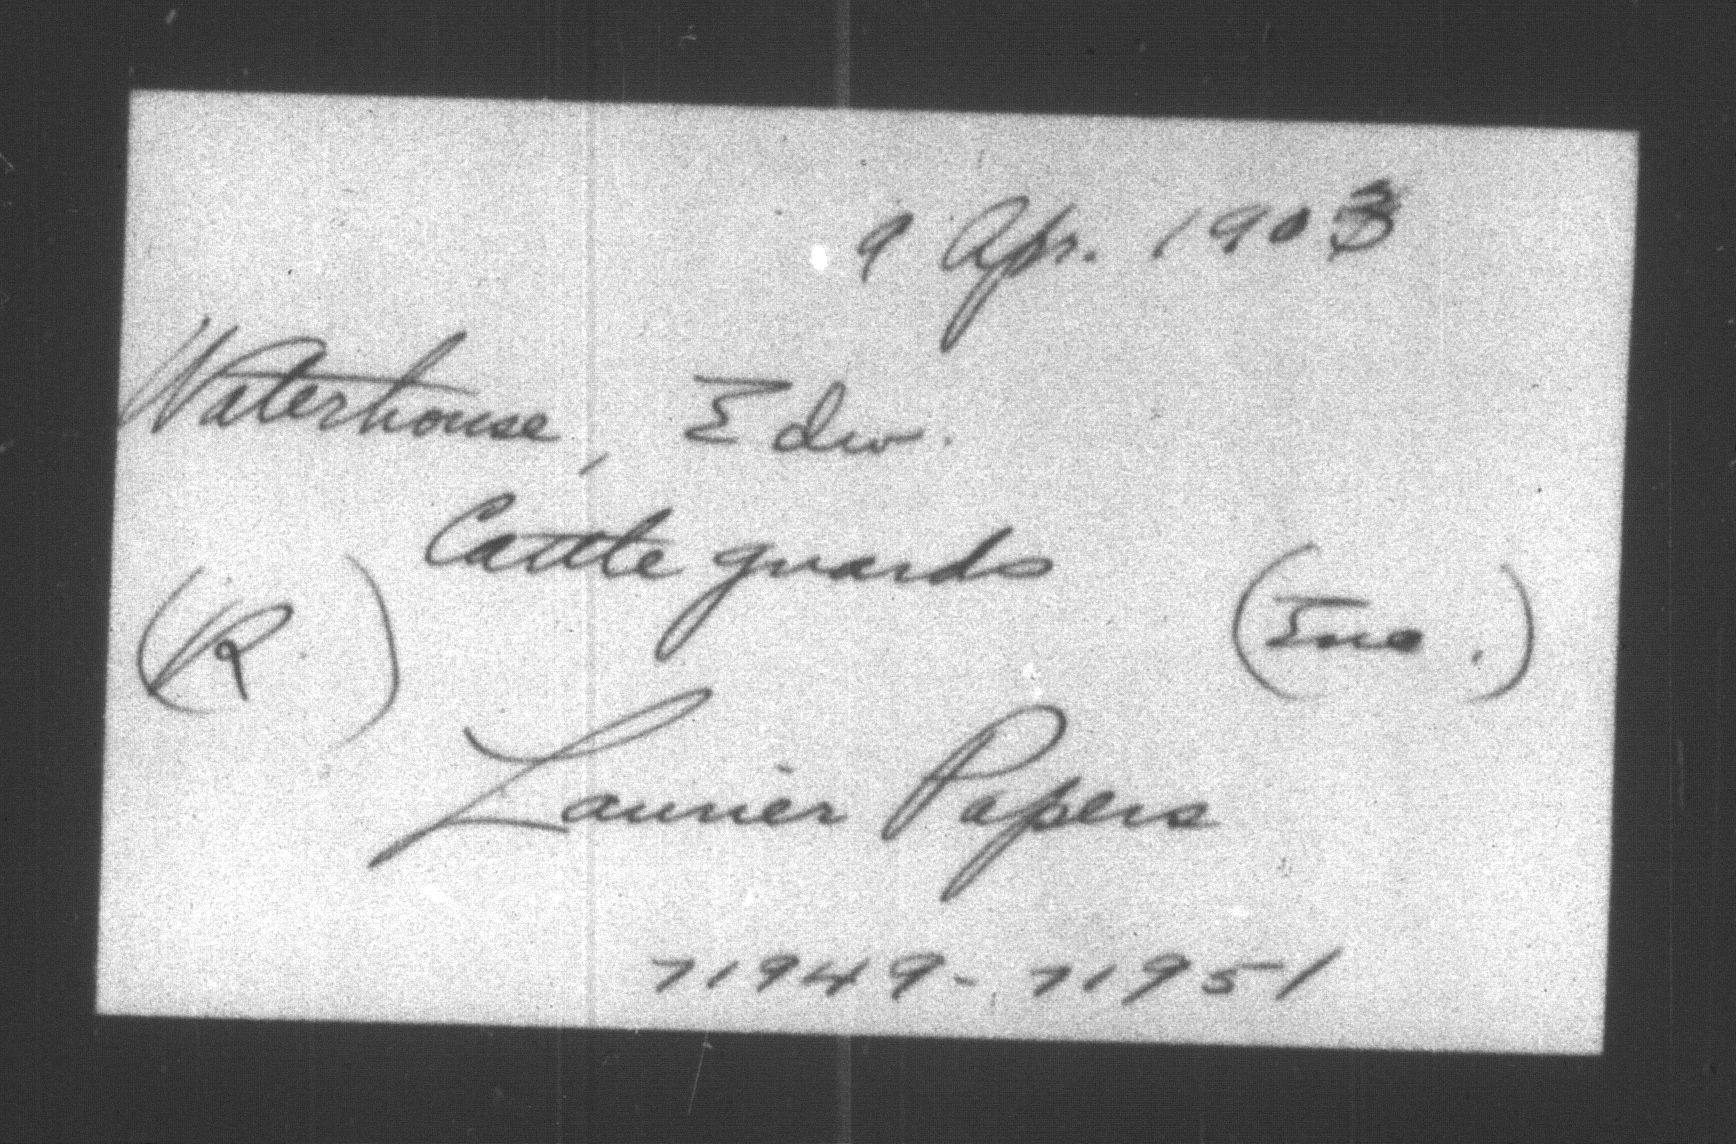 9 Apr. 1903
Waterhouse, Edw.
Cattle guards
(R) (Enc.)
Laurier Papers
71949-71951